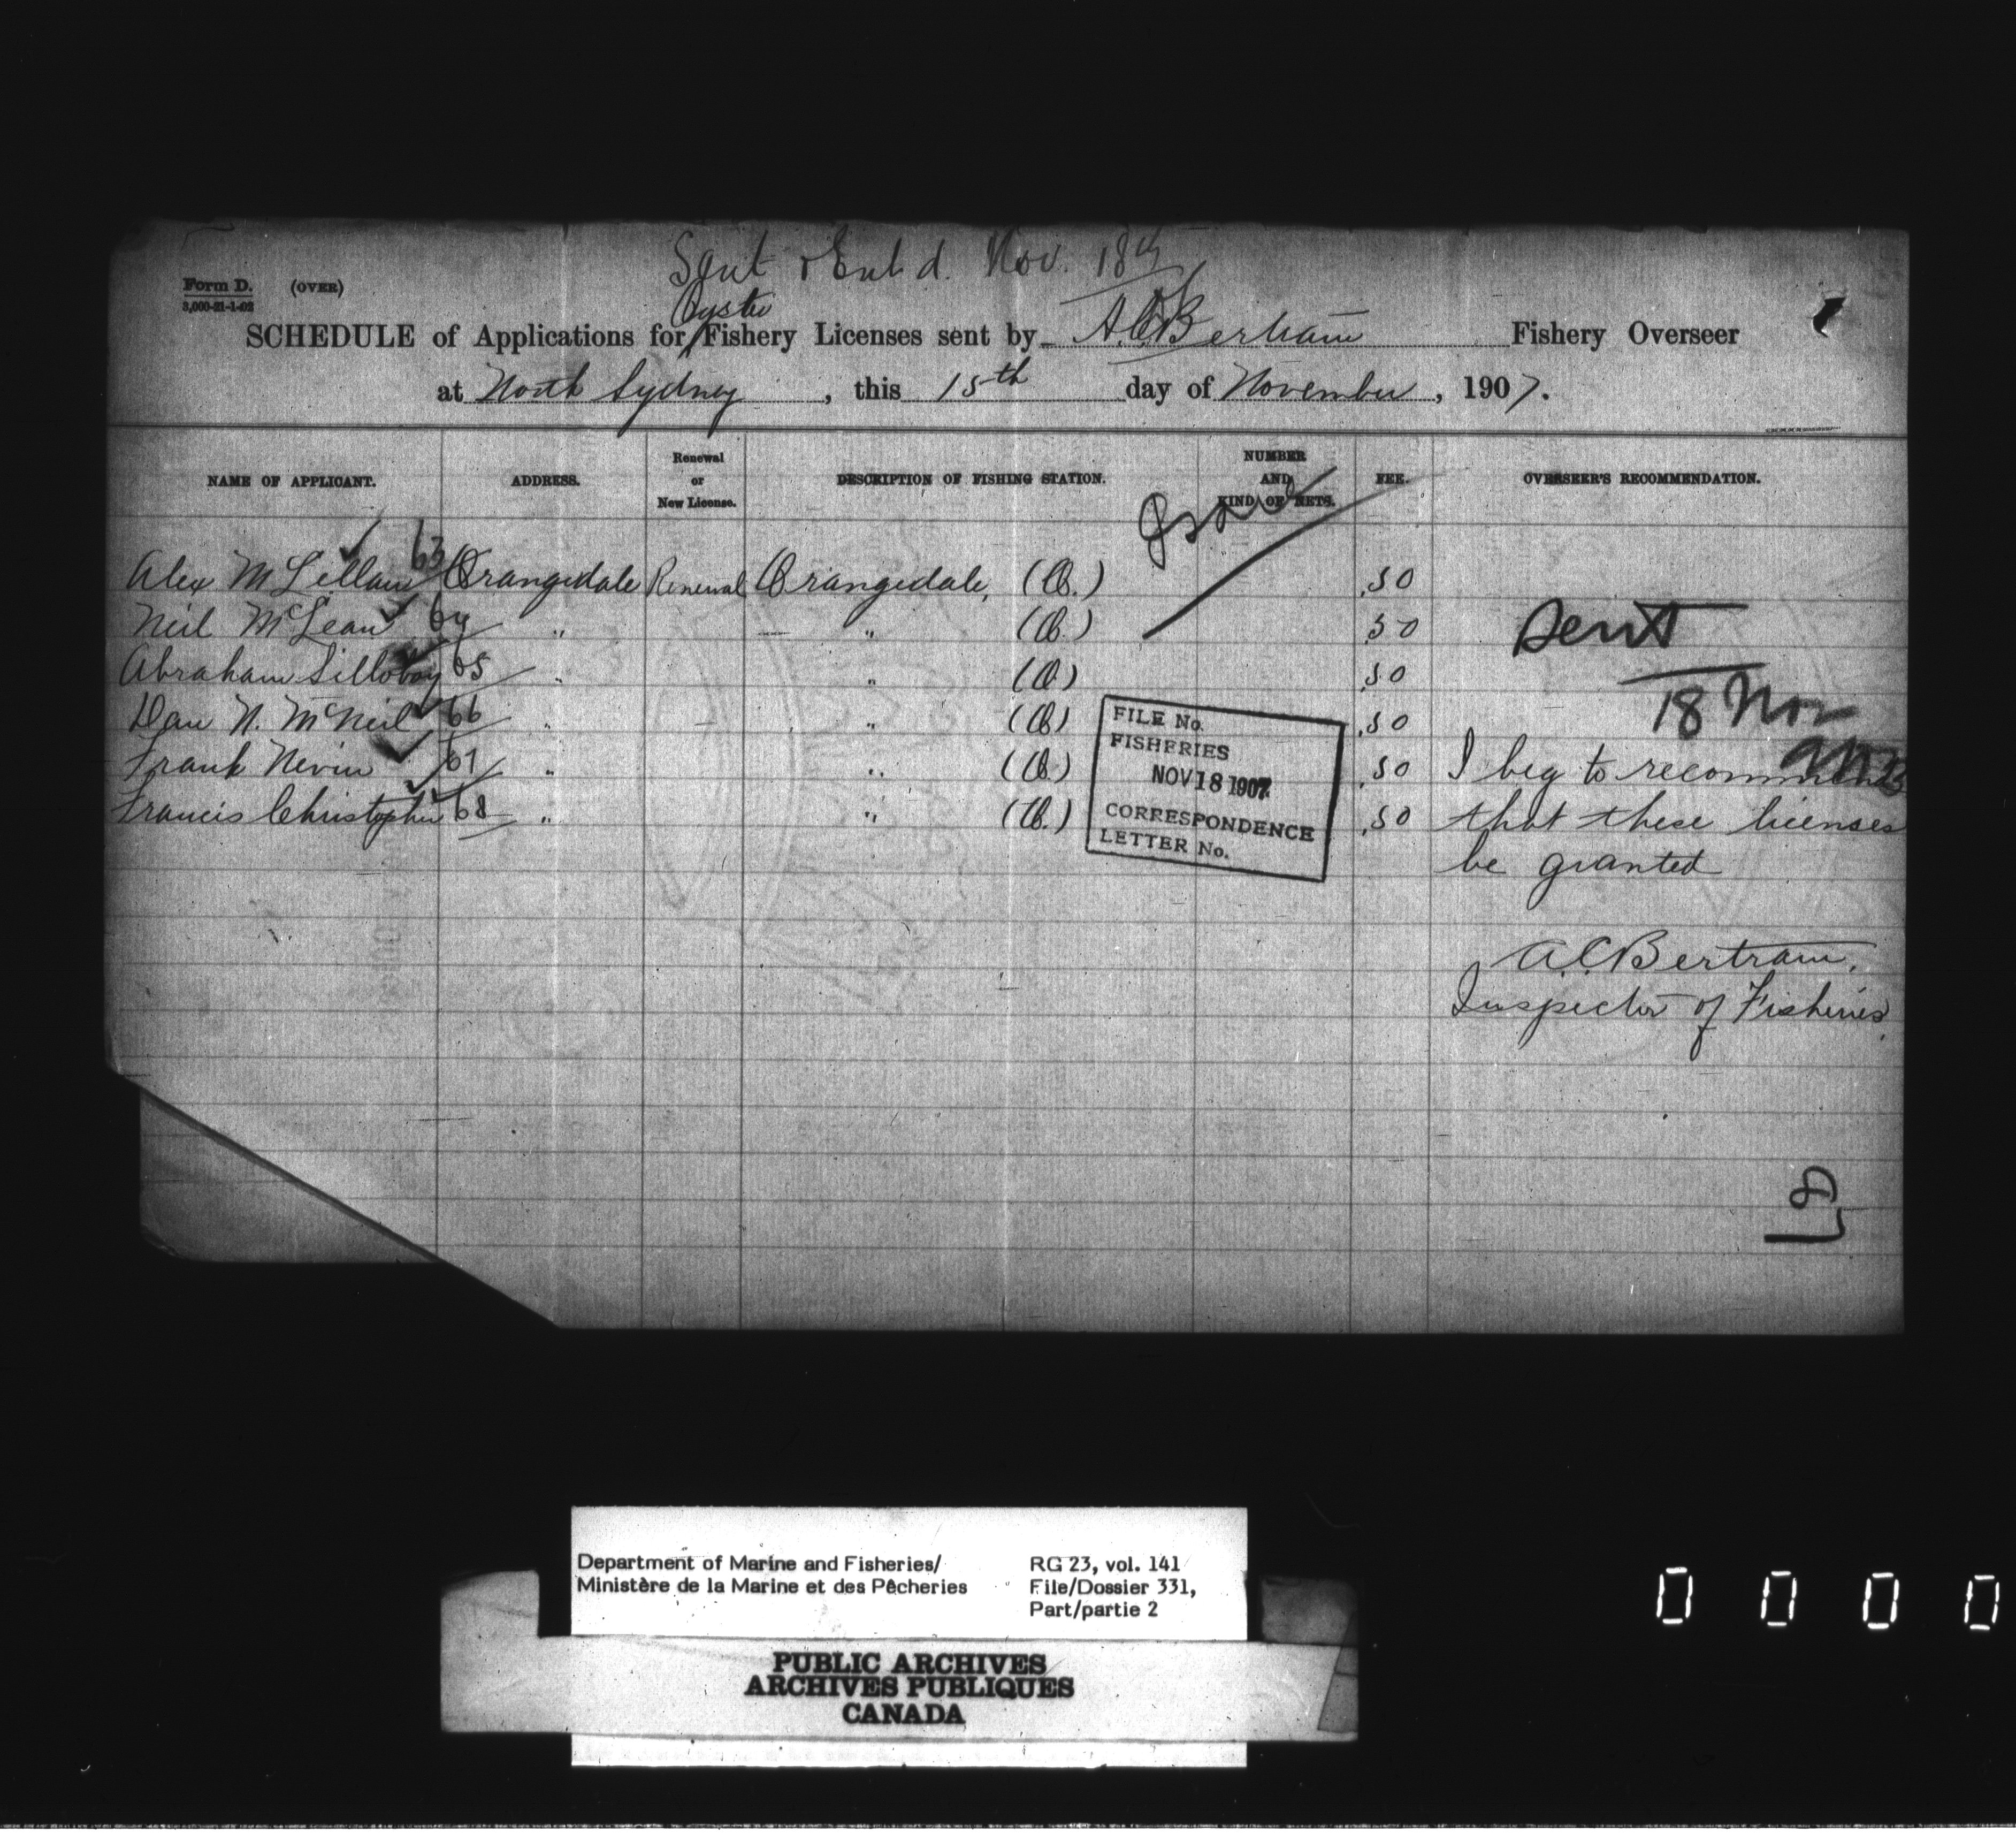 Sent & Ent'd. Nov. 18th
Form D. (OVER)
3,000-21-1-02
Oyster
SCHEDULE of Applications for Fishery Licenses sent by A.C. Bertram Fishery Overseer
at North Sydney, this 15th day of November, 1907.
NAME OF APPLICANT. ADDRESS. Renewal or New License. DESCRIPTION OF FISHING STATION. NUMBER AND KIND OF NETS. FEE. OVERSEER'S RECOMMENDATION.
Alex McLellan 63 Orangedale Renewal Orangedale, (C.B.) .50
Neil McLean 64 " " (C.B.) .50
Abraham Silloboy 65 " " (C.B.) .50
Dan N. McNeil 66 " " (C.B.) .50
Frank Nevin 67 " " (C.B.) .50
Francis Christopher 68 " " (C.B.) .50
Sent
18 Nov
I beg to recommend
that these licenses
be granted
A.C. Bertram,
Inspector of Fisheries.
FILE No.
FISHERIES
NOV 18 1907
CORRESPONDENCE
LETTER No.
Department of Marine and Fisheries/
Ministère de la Marine et des Pêcheries
RG 23, vol. 141
File/Dossier 331,
Part/partie 2
PUBLIC ARCHIVES
ARCHIVES PUBLIQUES
CANADA
0 0 0 0